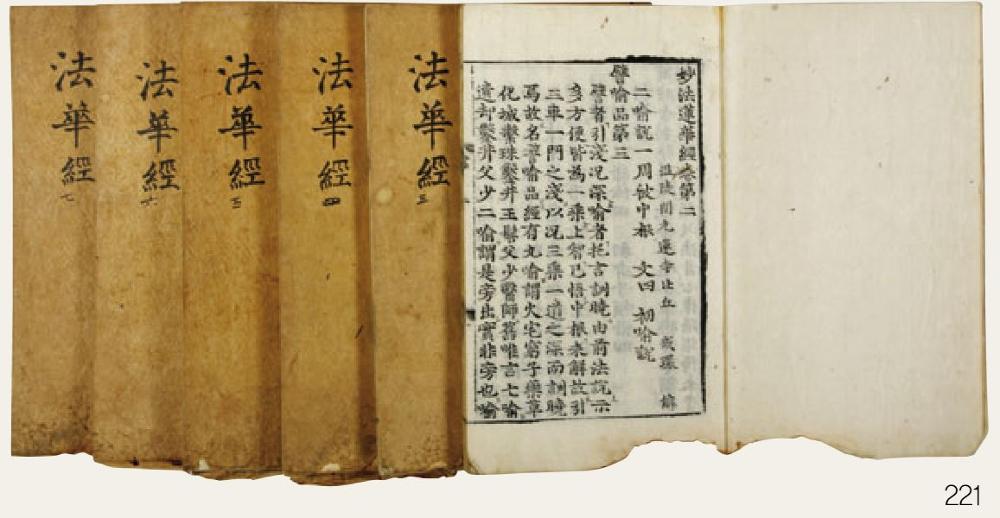 妙法蓮華經卷第二
溫陵開元蓮寺比丘 戒環 解
二喻說一周被中根 文四 初喻說
譬喻品第三
譬者引淺況深喻者托言訓曉由前法說示
多方便皆爲一乘上智已悟中根未解故引
三車一門之淺以况三乘一道之深而訓曉
焉故名譬喻品經有九喻謂火宅窮子藥草
化城繫珠鑿井王髻父少醫師舊唯言七喻
遺却鑿井父少二喻謂是旁出實非旁也喻
法華經 三
法華經 四
法華經 五
法華經 六
法華經 七
221